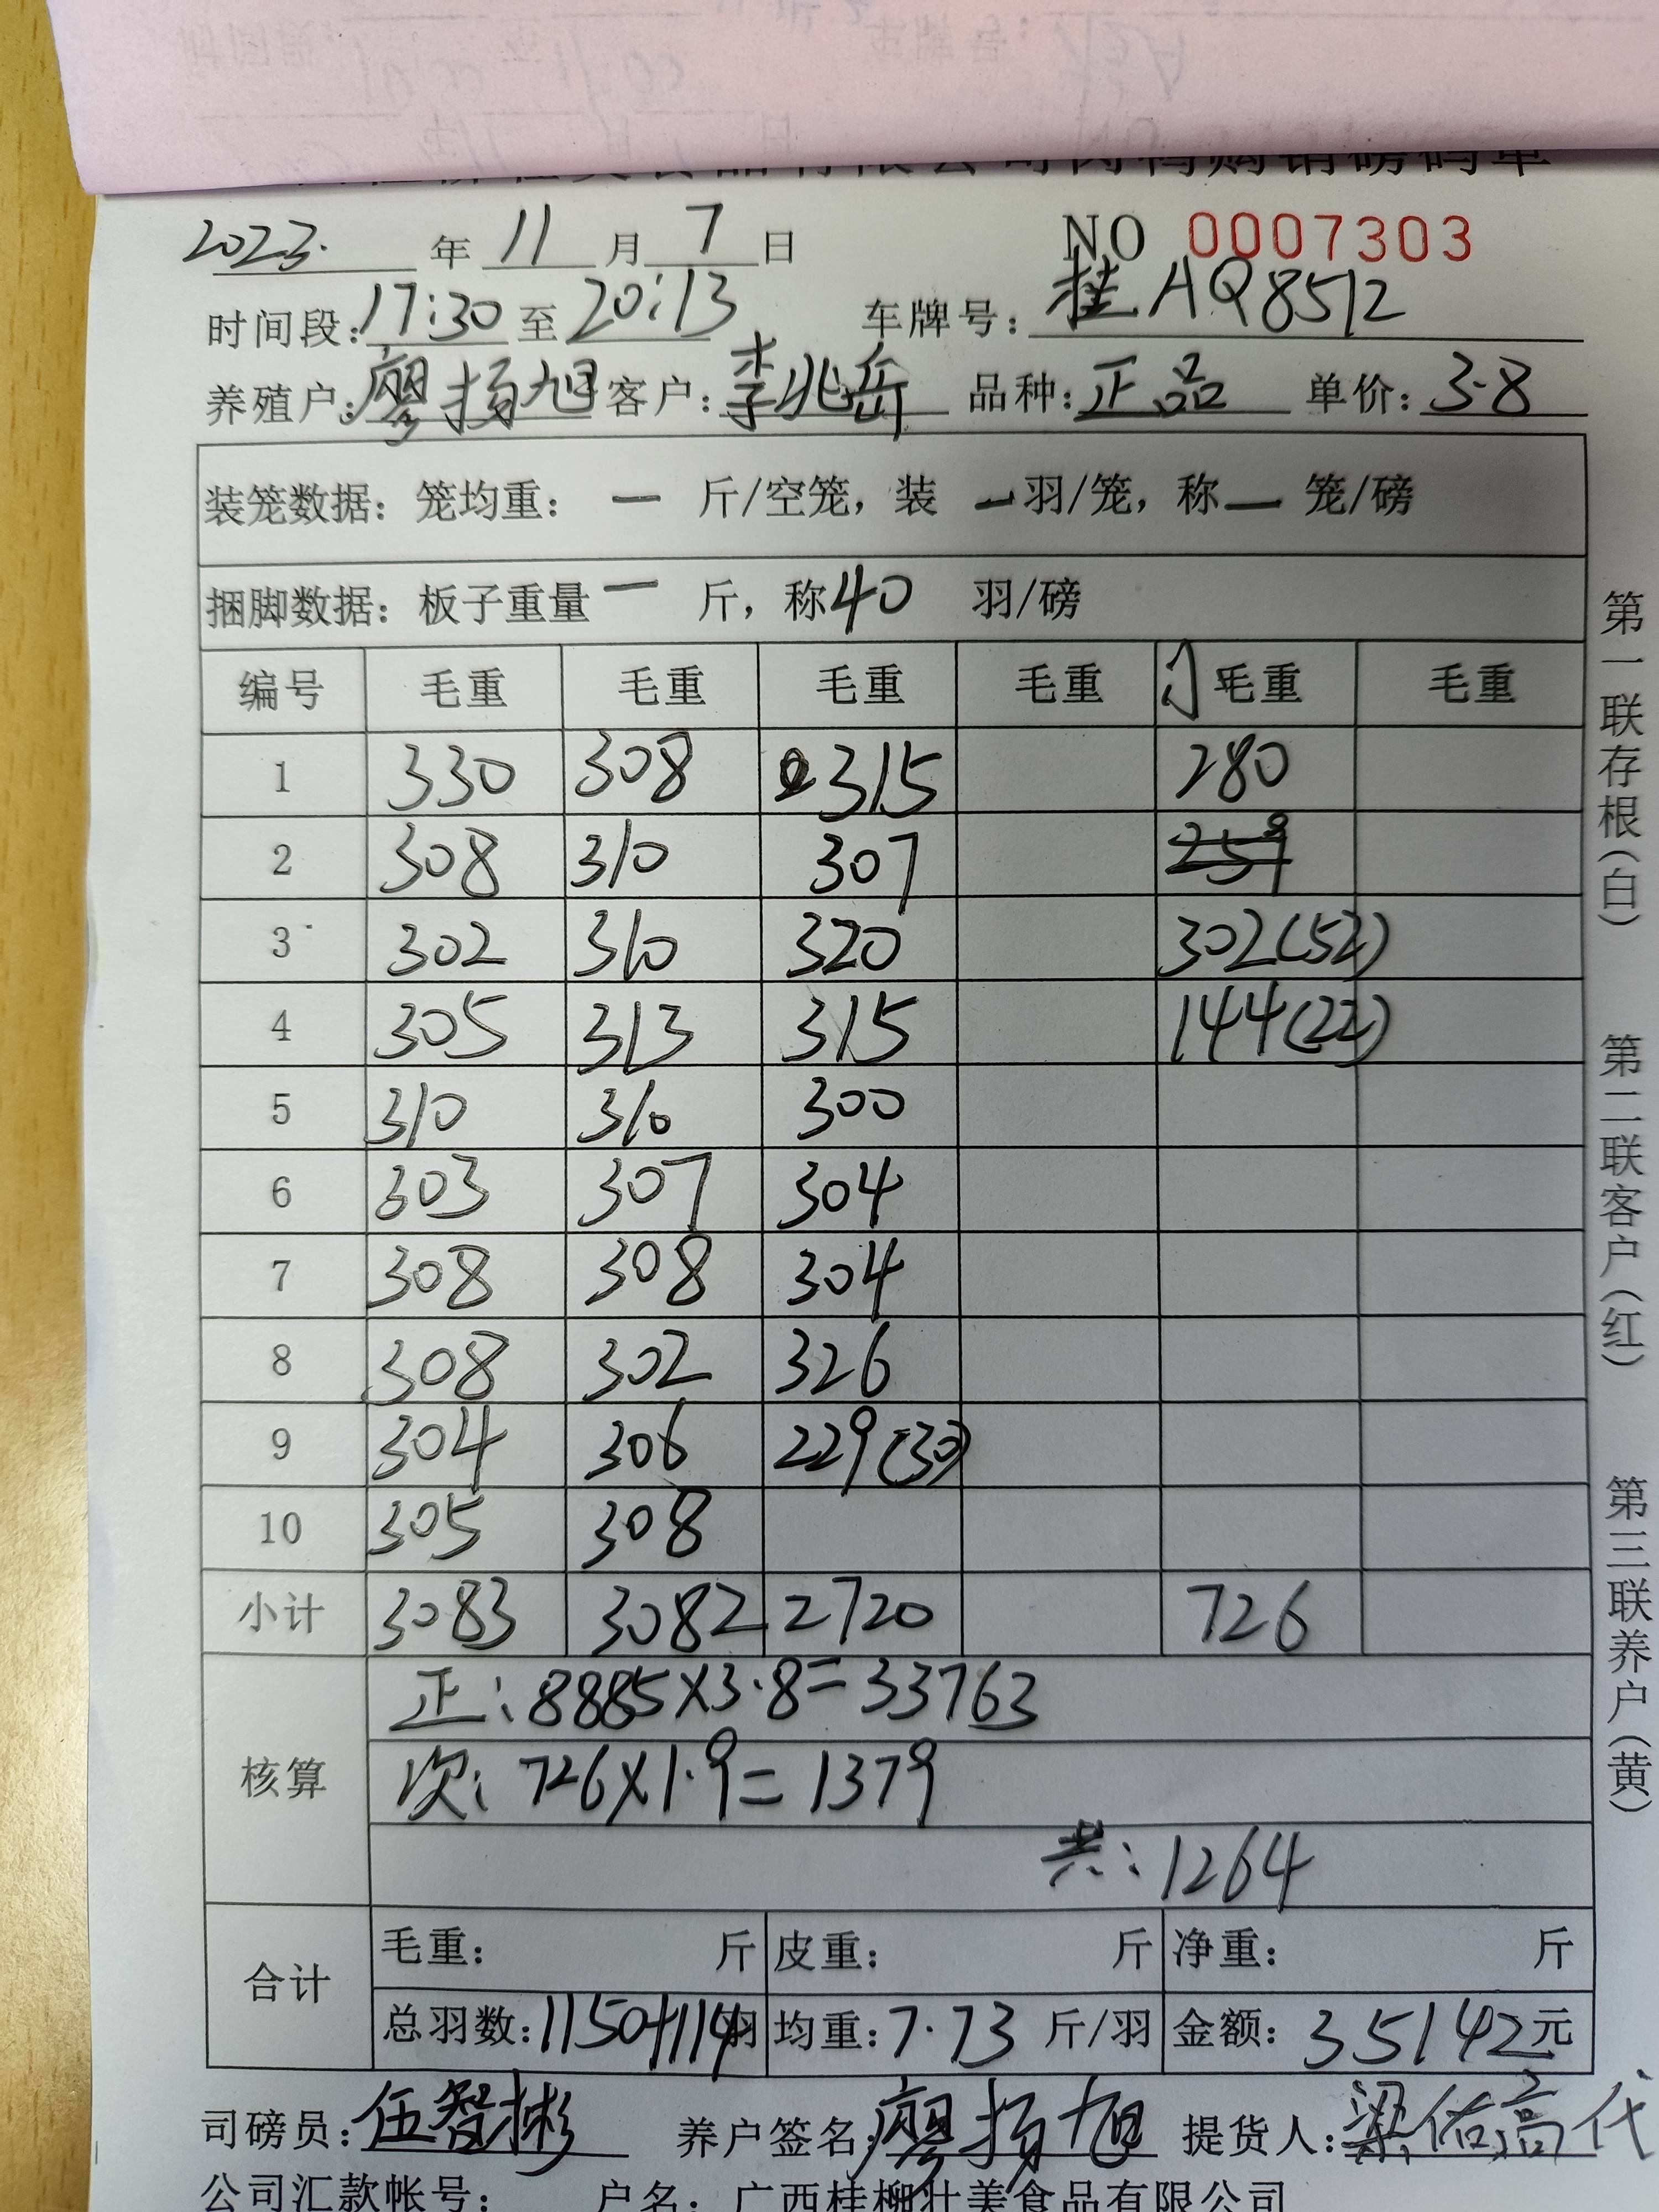 食品有限公司肉鸭购销磅码单
2023. 年 11 月 7 日 NO 0007303
时间段: 17:30 至 20:13 车牌号: 桂AQ8512
养殖户: 廖扬旭 客户: 李兆岳 品种: 正品 单价: 3.8
装笼数据: 笼均重: — 斤/空笼, 装 — 羽/笼, 称 — 笼/磅
捆脚数据: 板子重量 — 斤, 称 40 羽/磅
编号 毛重 毛重 毛重 毛重 毛重 毛重
1 330 308 315 280
2 308 310 307 259
3 302 310 320 302(52)
4 305 313 315 144(22)
5 310 310 300
6 303 307 304
7 308 308 304
8 308 302 326
9 304 306 229(30)
10 305 308
小计 3083 3082 2720 726
核算
正: 8885×3.8=33763
次: 726×1.9=1379
共: 1264
合计
毛重: 斤 皮重: 斤 净重: 斤
总羽数: 1150+114羽 均重: 7.73 斤/羽 金额: 35142元
司磅员: 伍智彬 养户签名: 廖扬旭 提货人: 梁佑高代
公司汇款帐号: 户名: 广西桂柳壮美食品有限公司
第一联存根(白) 第二联客户(红) 第三联养户(黄)